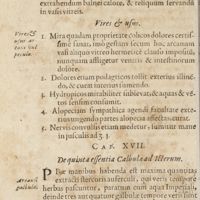 extrahendum balnei calore, & reliquum seruandū
in vasis vitreis.
Vires & usus.
Vires &
usus ac
1. Mira quadam proprietate colicos dolores certissimè
sanat, imò gestatus secum hoc arcanum
vasi aliquo vitreo hermeticè clauso impositū,
nunquam affligetur ventris & intestinorum
dolore.
2. Dolores etiam podagricos tollit exterius illinédo,
& cuiem interius sumendo.
3. Hydropicos mirabiliter sanat & aquas & vétos
sensim consumit.
4. Alopeciam sympathica agendi facultate extetius
ungendo partes alopecia affectas, curat.
5. Nervis convulsis etiam medetur, sumitur mane
in pusculis ad ℨ ß.
CAP. XVII.
De quinta essentia Galbulæ ad Icterum.
PRæ manibus habenda est maxima quantitas
extracti stercoris anserculi, qui veris tempore
herbis pascuntur, paratum cum aqua Imperiali,
deinde tres aut quatuor galbulæ, quibus